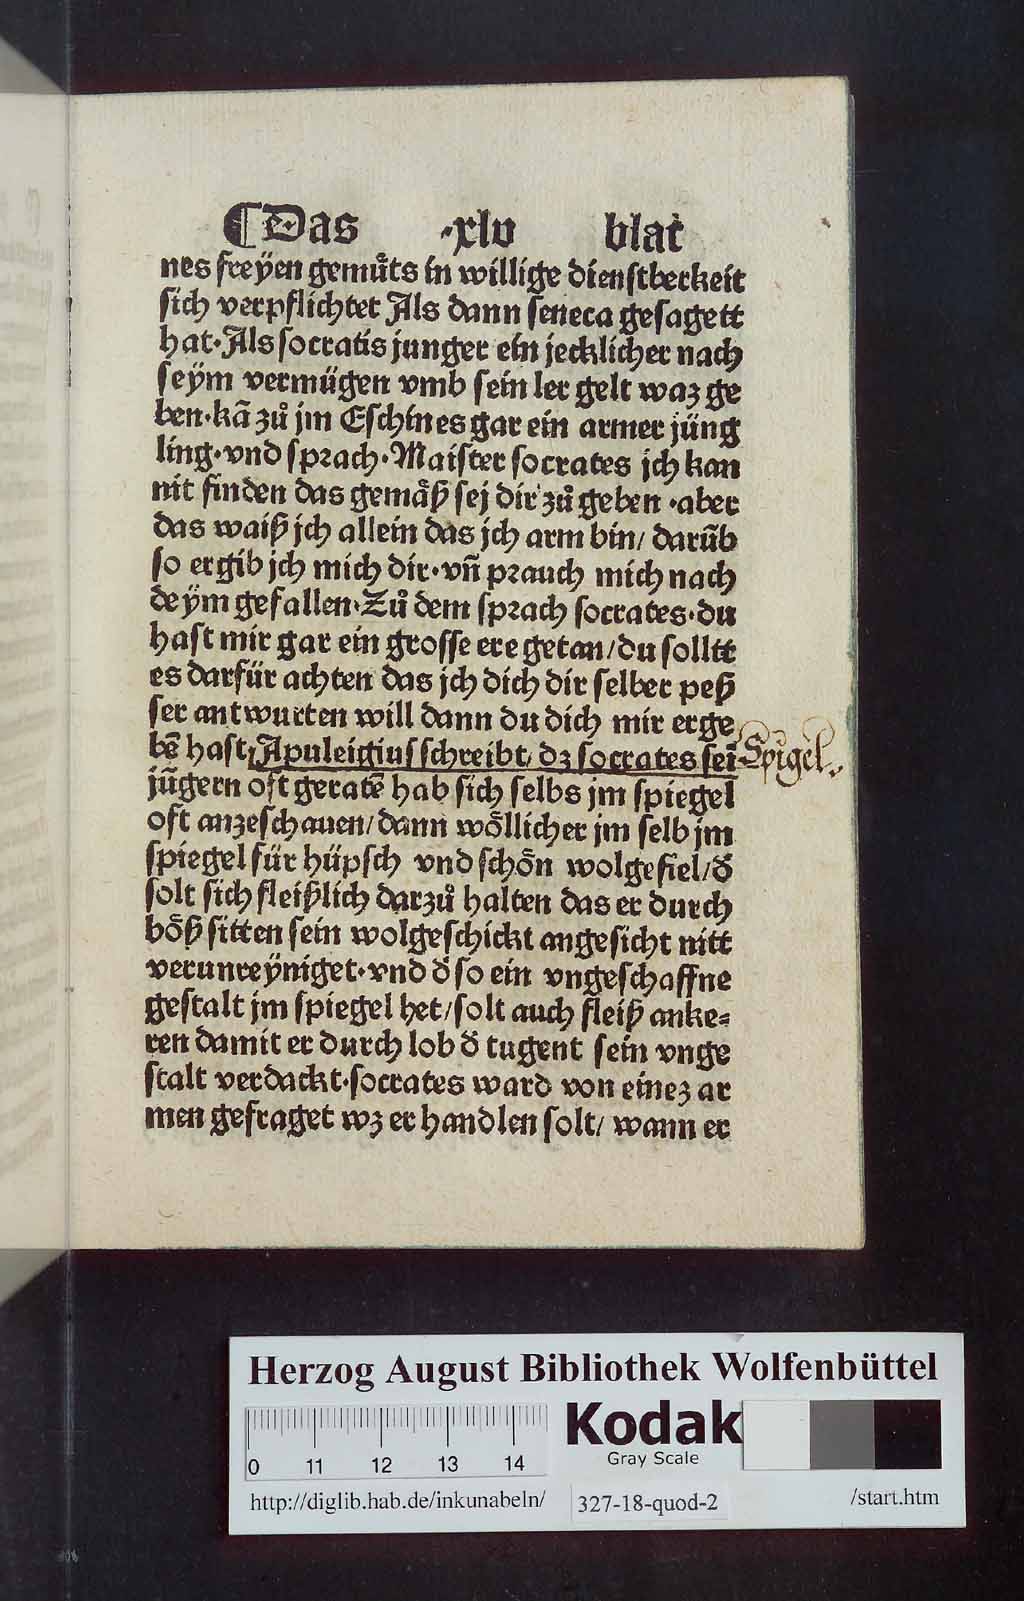 ¶ Das ·xlv blat
nes freyen gemuͤts in willige dienstberkeit
sich verpflichtet Als dann seneca gesagett
hat·Als socratis junger ein jecklicher nach
seÿm vermügen vmb sein ler gelt waz ge
ben·kā zuͦ jm Eschines gar ein armer jüng
ling·vnd sprach·Maister socrates jch kan
nit finden das gemaͤß sej dir zuͦ geben·aber
das waiß jch allein das jch arm bin/ darūb
so ergib jch mich dir·vn̄ prauch mich nach
deÿm gefallen·Zuͦ dem sprach socrates·du
hast mir gar ein grosse ere getan/du solltt
es darfür achten das jch dich dir selber peß
ser antwurten will dann du dich mir erge
bē hast/Apuleigius schreibt/ dz socrates sei᷑
jūgern oft geratē hab sich selbs jm spiegel
oft anzeschauen/dann woͤllicher jm selb jm
spiegel für hüpsch vnd schoͤn wolgefiel/d᷑
solt sich fleißlich darzuͦ halten das er durch
boͤß sitten sein wolgeschickt angesicht nitt
verunreÿniget·vnd d᷑ so ein vngeschaffne
gestalt jm spiegel het/solt auch fleiß anke⸗
ren damit er durch lob d᷑ tugent sein vnge
stalt verdackt·socrates ward von einez ar
men gefraget wz er handlen solt/ wann er
Spigel.
Herzog August Bibliothek Wolfenbüttel
0 11 12 13 14
Kodak
Gray Scale
http://diglib.hab.de/inkunabeln/ 327-18-quod-2 /start.htm